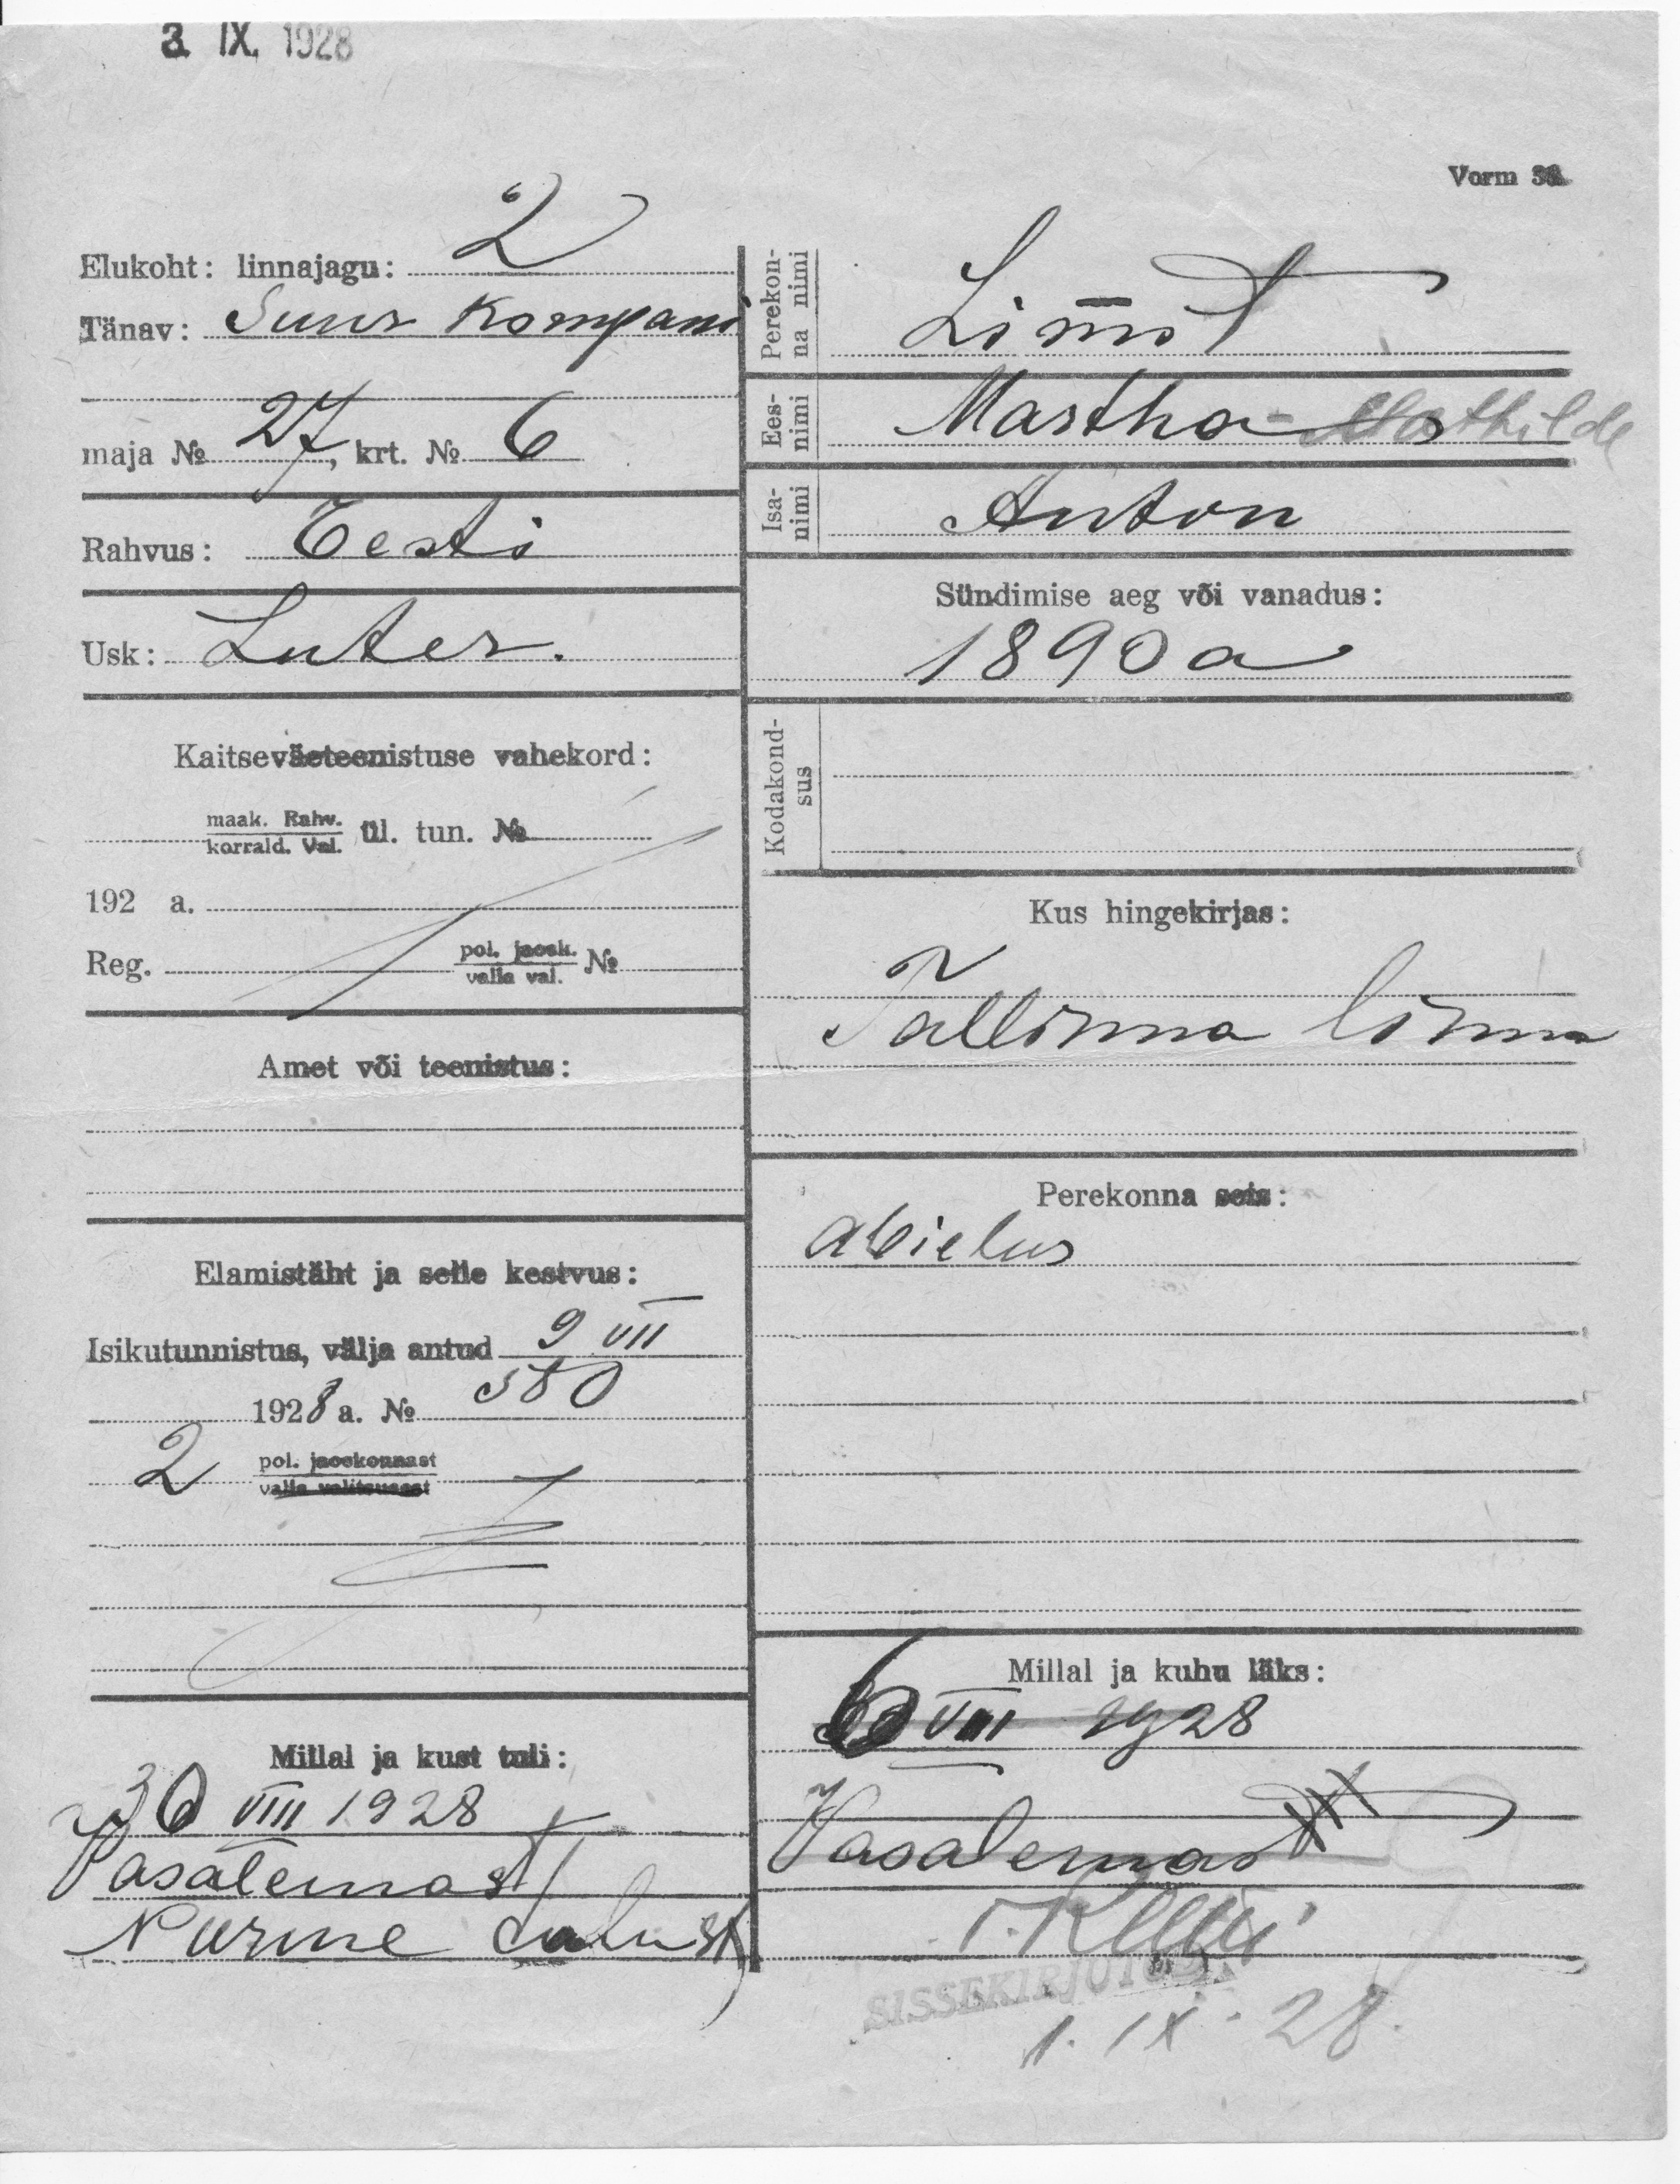 3. IX. 1928
Vorm
Elukoht: linnajagu: 2
Tänav: Suur Kompani
maja № 27, krt. № 6
Rahvus: Eesti
Usk: Luter.
Kaitseväeteenistuse vahekord:
maak. Rahv.
korrald. Val. ül. tun. №
192 a.
Reg. pol. jaosk. №
valla val.
Amet või teenistus:
Elamistäht ja selle kestvus:
Isikutunnistus, välja antud 9 VII
1928 a. № 580
2 pol. jaoskonnast
valla valitsusest
Millal ja kust tuli:
30 VIII 1928
Vasalemast
Nurme talust
Perekonna nimi
Eesnimi Martha-Mathilde
Isanimi Anton
Sündimise aeg või vanadus:
1890 a
Kodakondsus
Kus hingekirjas:
Tallinna linna
Perekonna seis:
abielus
Millal ja kuhu läks:
VIII 1928
Vasalemast
SISSEKIRJUTUD
1. IX. 28.